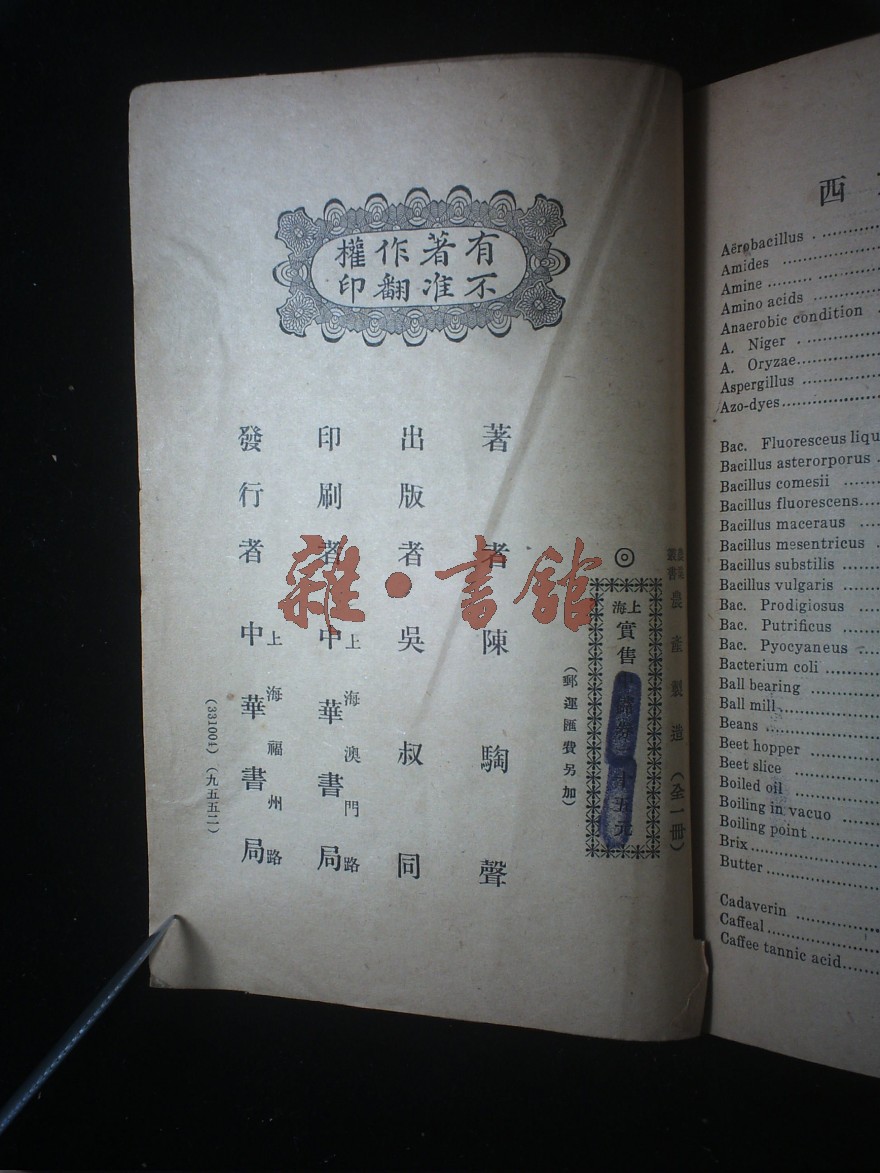 有著作權
不准翻印
農業叢書 農產製造（全一冊）
◎
上海實售
十五元
（郵運匯費另加）
著者 陳騊聲
出版者 吳叔同
印刷者 上海澳門路 中華書局
發行者 上海福州路 中華書局
（33100ｔ）（九五五二）
雜·書館
西
Aërobacillus
Amides
Amine
Amino acids
Anaerobic condition
A. Niger
A. Oryzae
Aspergillus
Azo-dyes
Bac. Fluoresceus liqu
Bacillus asterorporus
Bacillus comesii
Bacillus fluorescens
Bacillus maceraus
Bacillus mesentricus
Bacillus substilis
Bacillus vulgaris
Bac. Prodigiosus
Bac. Putrificus
Bac. Pyocyaneus
Bacterium coli
Ball bearing
Ball mill
Beans
Beet hopper
Beet slice
Boiled oil
Boiling in vacuo
Boiling point
Brix
Butter
Cadaverin
Caffeal
Caffee tannic acid